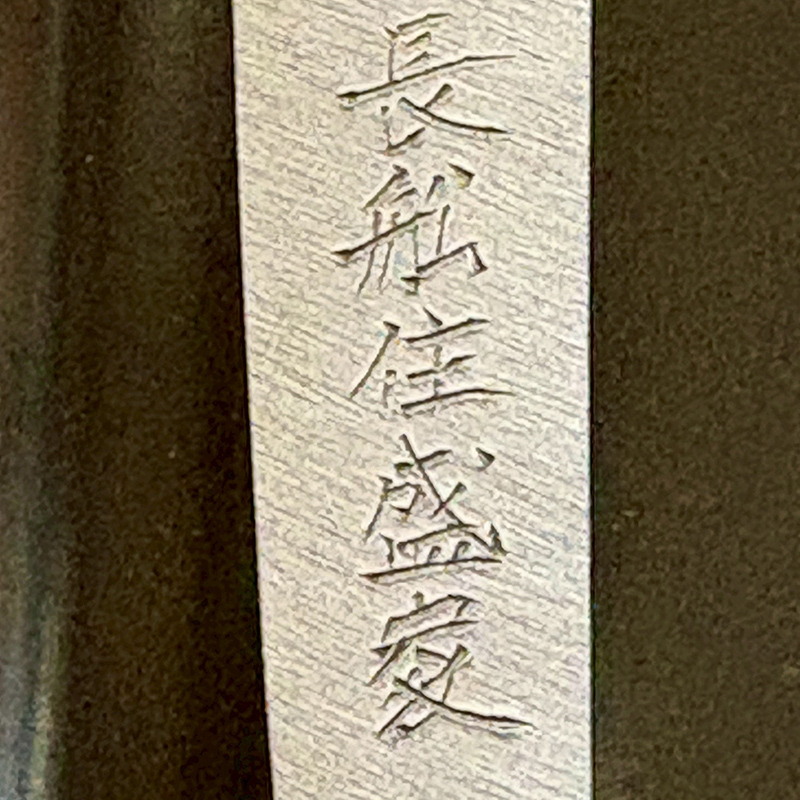 長船住盛家